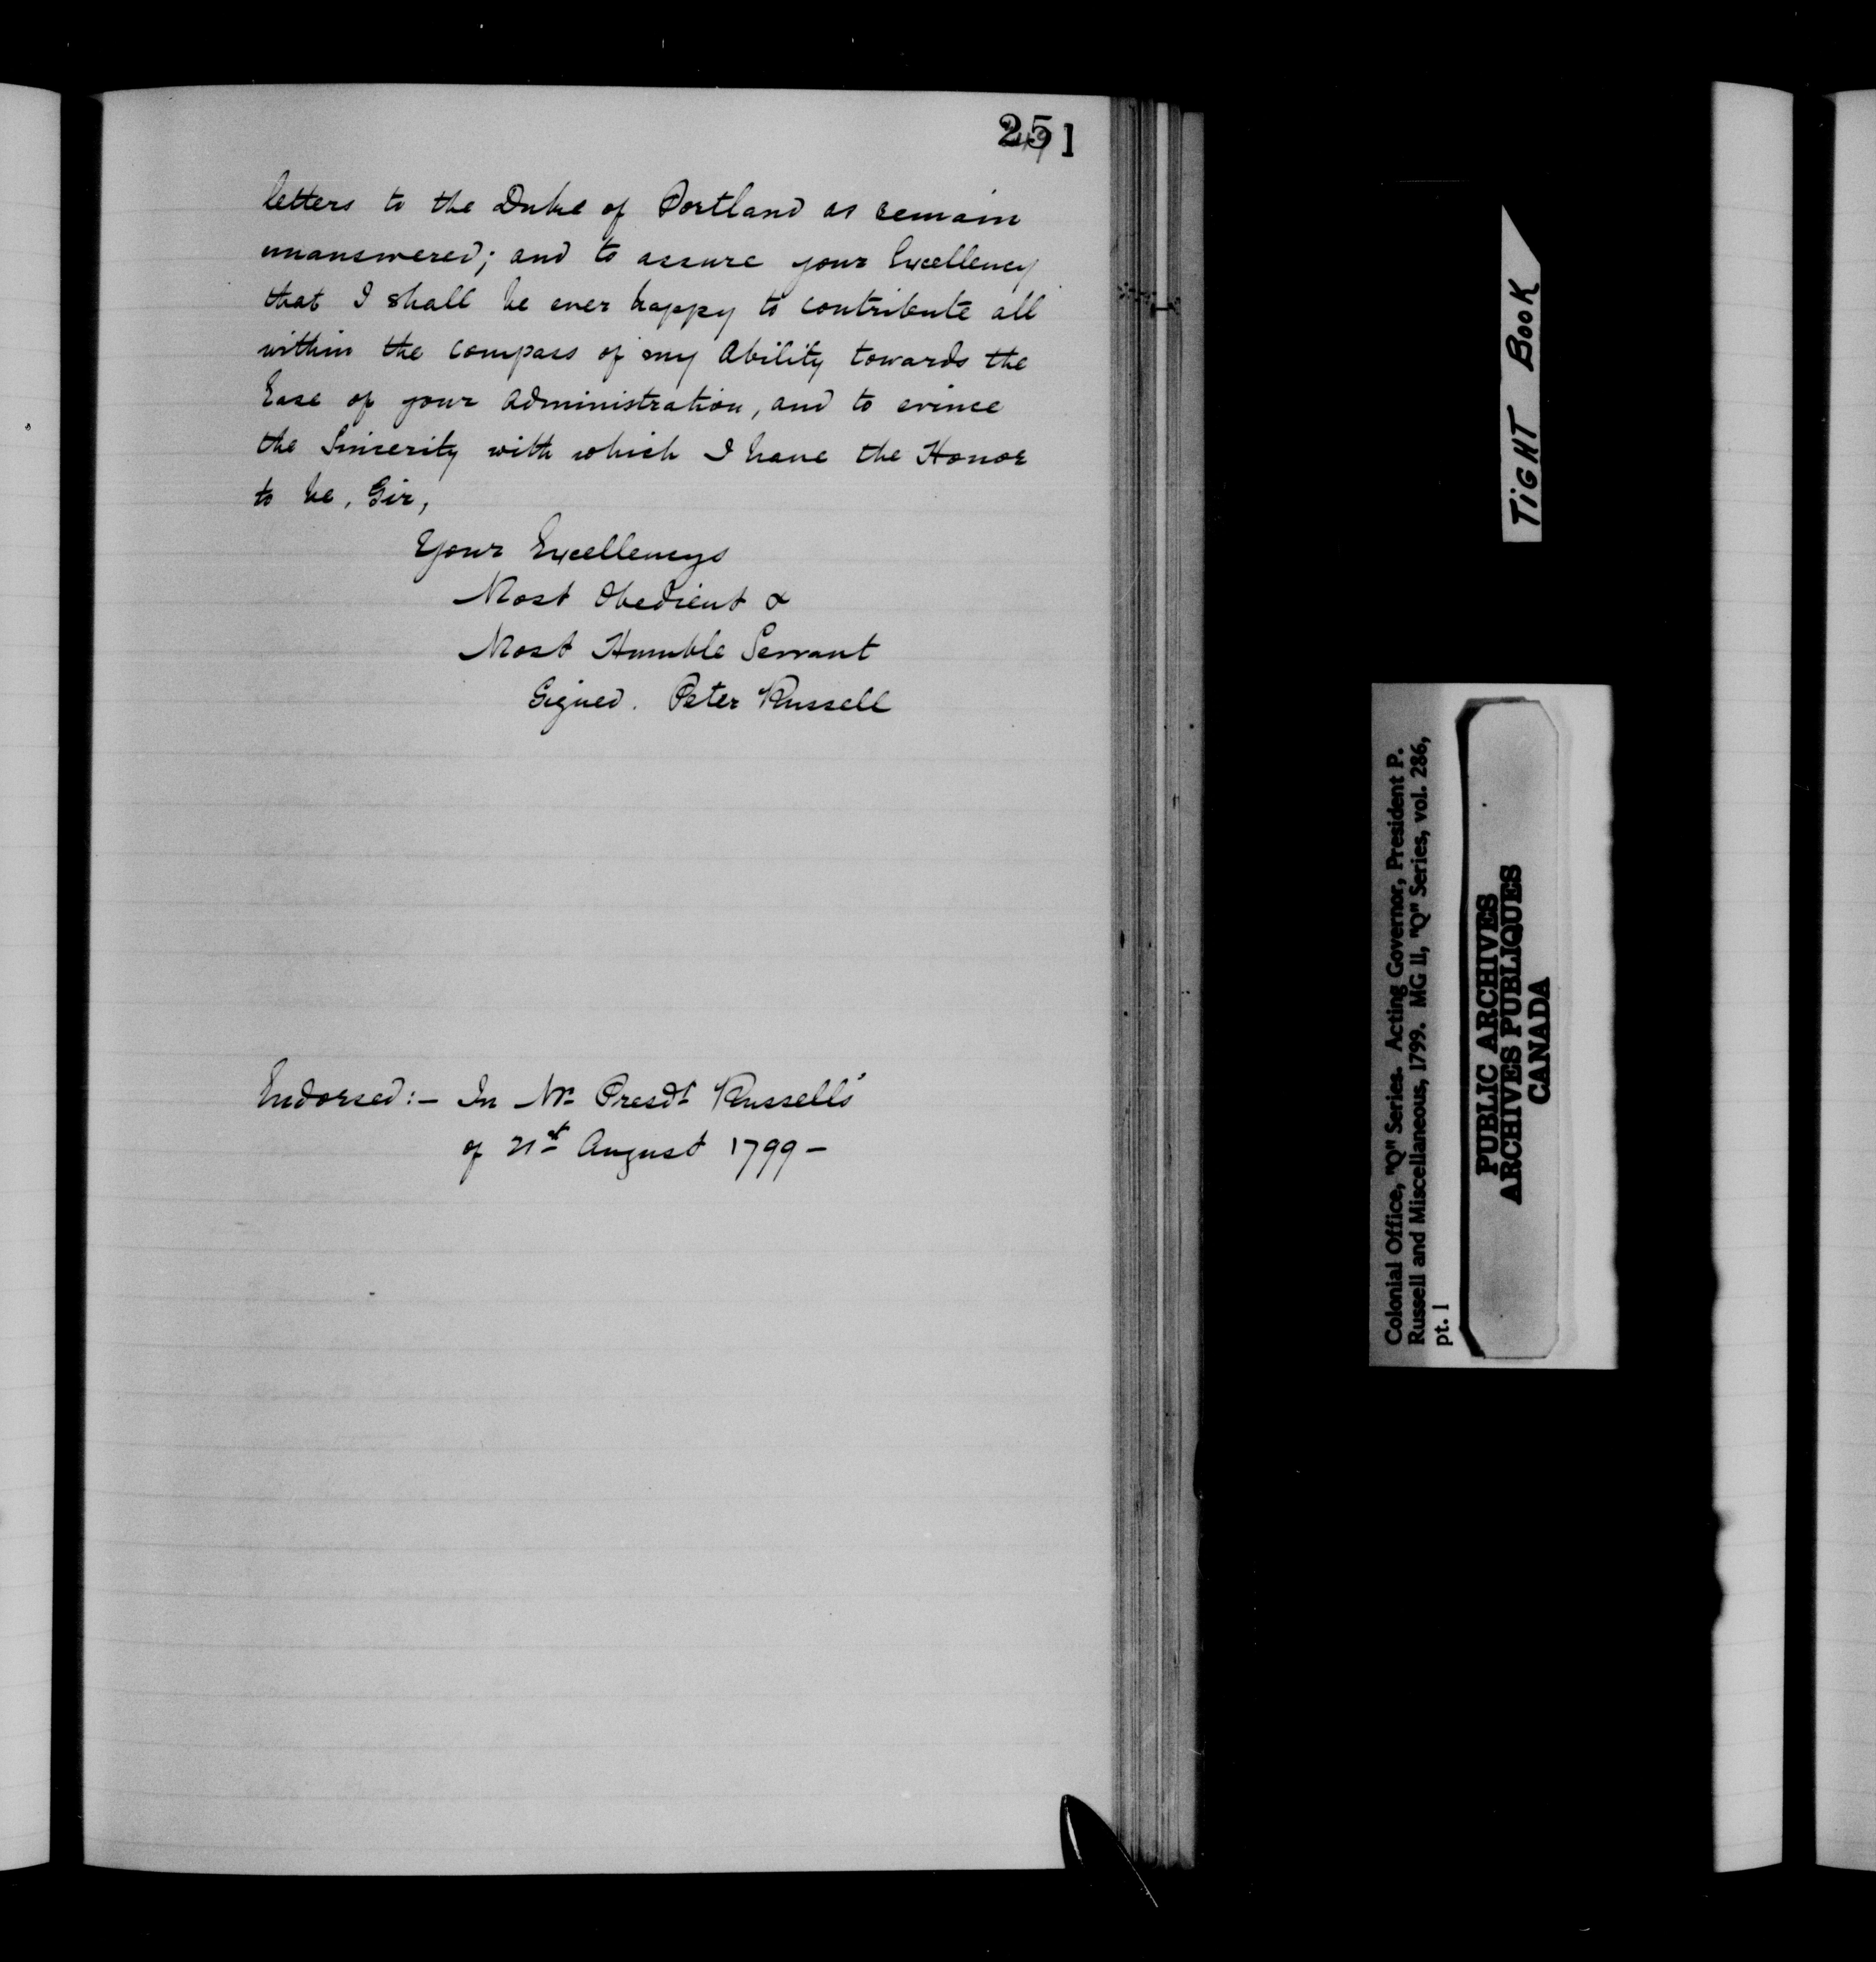 251
letters to the Duke of Portland as remain
unanswered; and to assure your Excellency
that I shall be ever happy to contribute all
within the compass of my Ability towards the
Ease of your administration, and to evince
the Sincerity with which I have the Honor
to be, Sir,
Your Excellencys
Most Obedient &
Most Humble Servant
Signed. Peter Russell
Endorsed:- In Mr. Presdt Russell's
of 21st August 1799-
TIGHT BOOK
Colonial Office, "Q" Series. Acting Governor, President P.
Russell and Miscellaneous, 1799. MG 11, "Q" Series, vol. 286,
pt. 1
PUBLIC ARCHIVES
ARCHIVES PUBLIQUES
CANADA